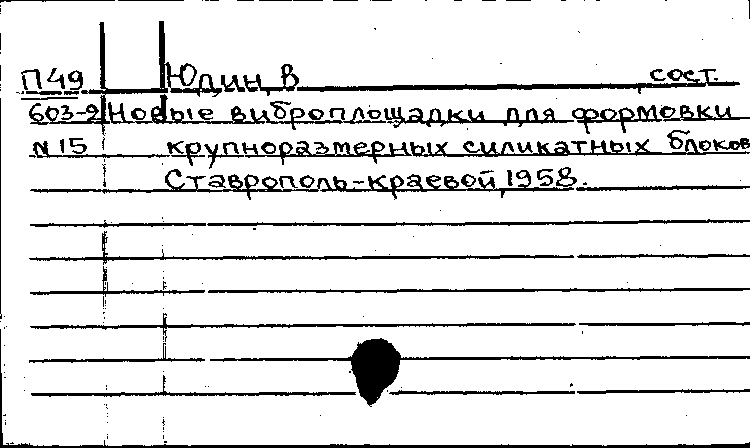 П49 Юдин, В сост.
603-2 Новые виброплощадки для формовки
N 15 крупноразмерных силикатных блоков
Ставрополь-краевой, 1958.